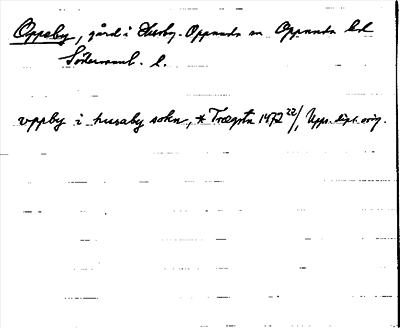 Oppeby, gård i Husby-Oppunda sn Oppunda hd
Södermanl. l.
vppby i husaby sokn, * Trægstа 1472 22/, Upps. dipl. orig.